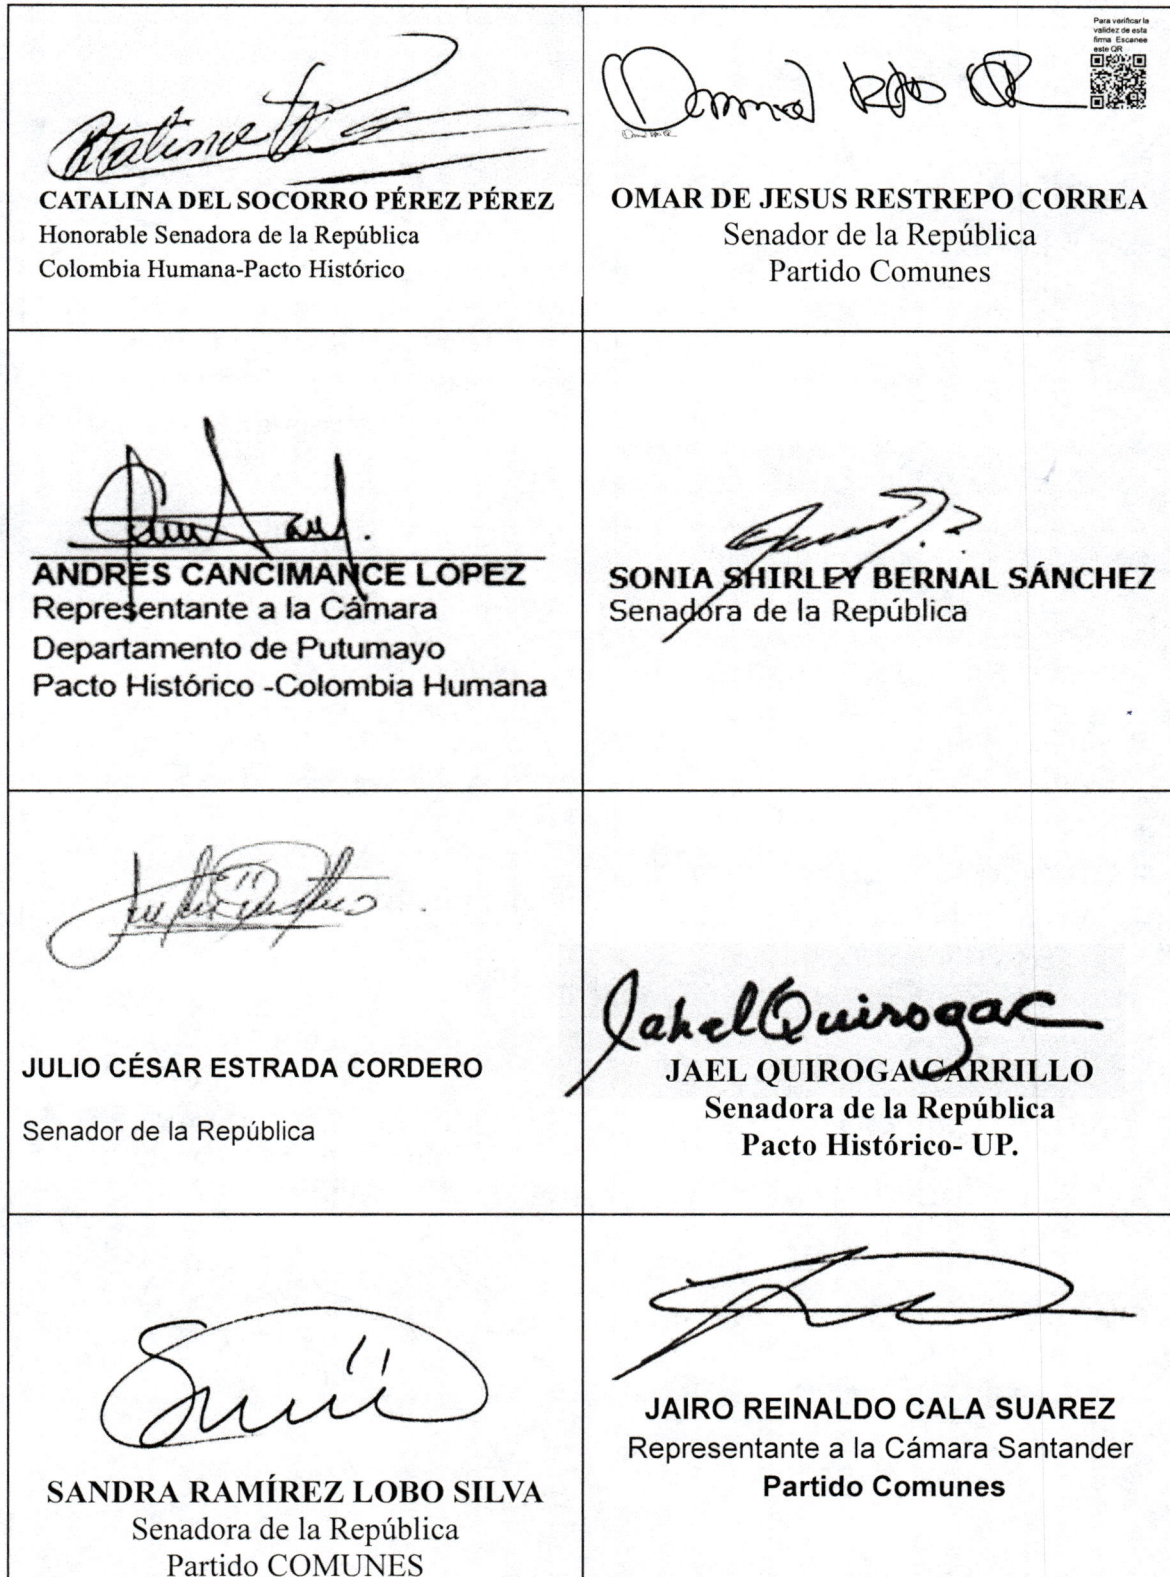 Para verificar la
validez de esta
firma Escanee
este QR
CATALINA DEL SOCORRO PÉREZ PÉREZ
Honorable Senadora de la República
Colombia Humana-Pacto Histórico
OMAR DE JESUS RESTREPO CORREA
Senador de la República
Partido Comunes
ANDRÉS CANCIMANCE LÓPEZ
Representante a la Cámara
Departamento de Putumayo
Pacto Histórico -Colombia Humana
SONIA SHIRLEY BERNAL SÁNCHEZ
Senadora de la República
JULIO CÉSAR ESTRADA CORDERO
Senador de la República
Jahel Quiroga C
JAEL QUIROGA CARRILLO
Senadora de la República
Pacto Histórico- UP.
SANDRA RAMÍREZ LOBO SILVA
Senadora de la República
Partido COMUNES
JAIRO REINALDO CALA SUAREZ
Representante a la Cámara Santander
Partido Comunes